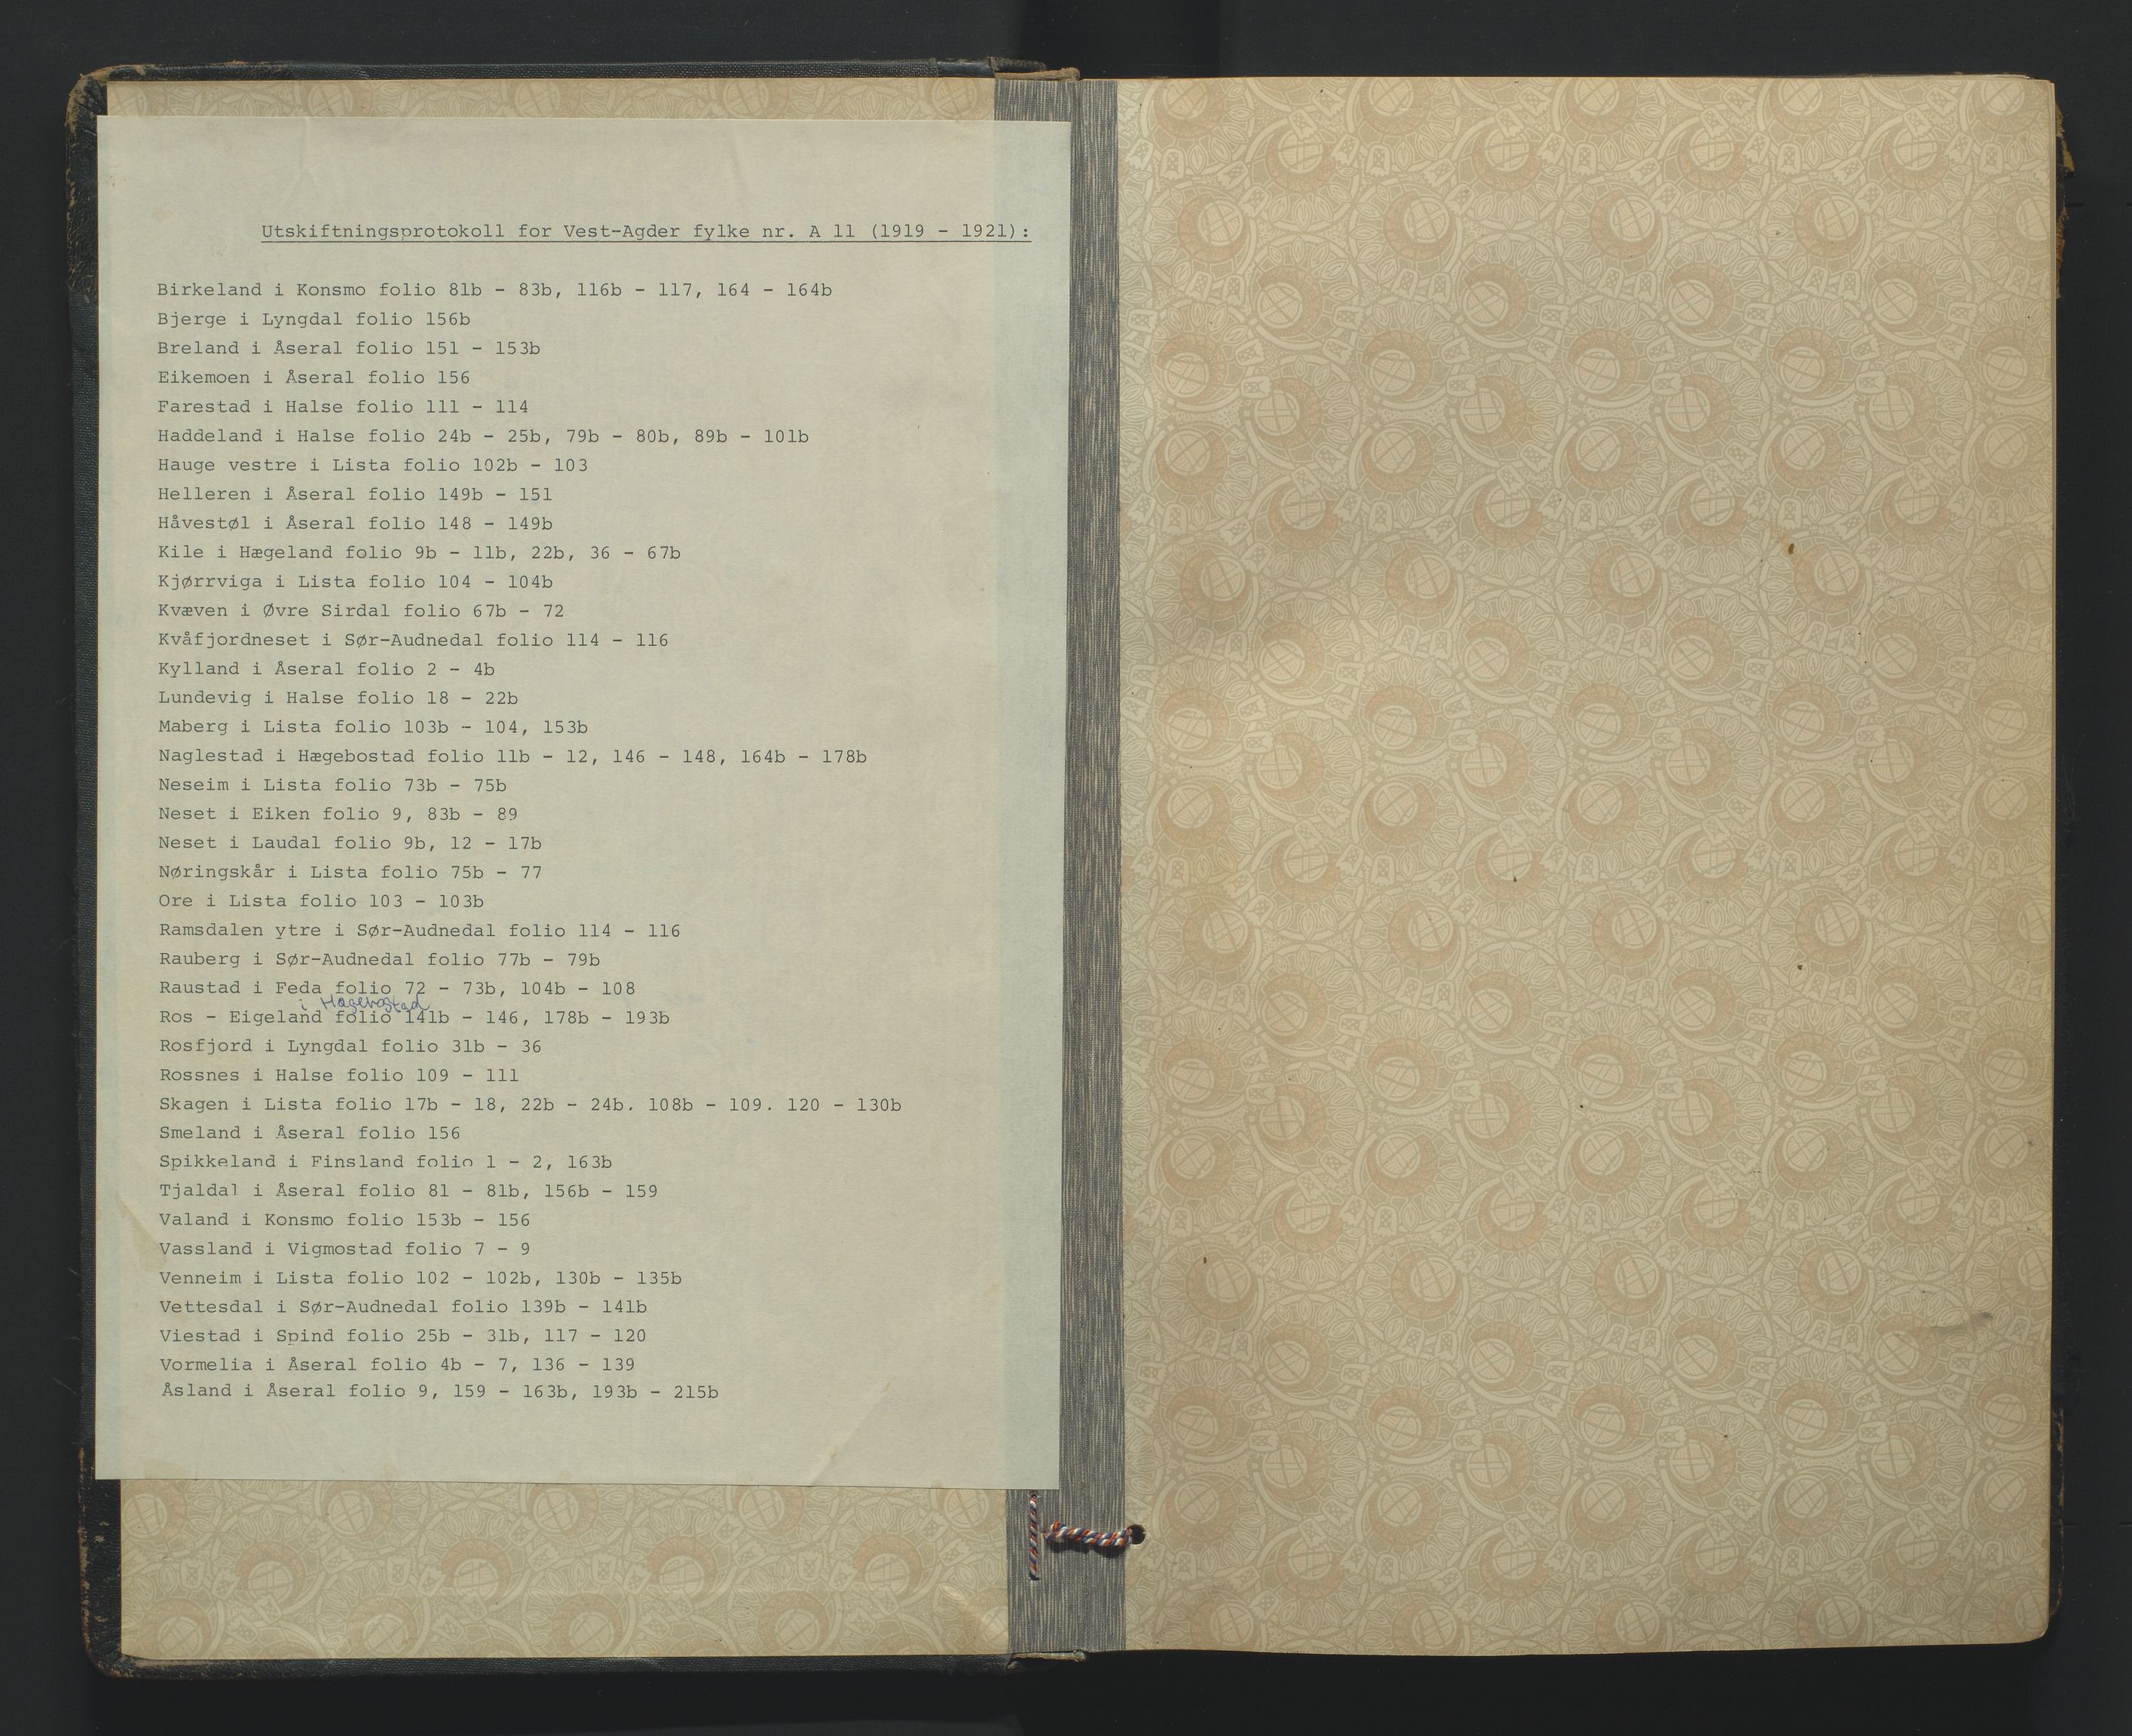 Utskiftningsprotokoll for Vest-Agder fylke nr. A 11 (1919 - 1921):
Birkeland i Konsmo folio 81b - 83b, 116b - 117, 164 - 164b
Bjerge i Lyngdal folio 156b
Breland i Åseral folio 151 - 153b
Eikemoen i Åseral folio 156
Farestad i Halse folio 111 - 114
Haddeland i Halse folio 24b - 25b, 79b - 80b, 89b - 101b
Hauge vestre i Lista folio 102b - 103
Helleren i Åseral folio 149b - 151
Håvestøl i Åseral folio 148 - 149b
Kile i Hægeland folio 9b - 11b, 22b, 36 - 67b
Kjørrviga i Lista folio 104 - 104b
Kvæven i Øvre Sirdal folio 67b - 72
Kvåfjordneset i Sør-Audnedal folio 114 - 116
Kylland i Åseral folio 2 - 4b
Lundevig i Halse folio 18 - 22b
Maberg i Lista folio 103b - 104, 153b
Naglestad i Hægebostad folio 11b - 12, 146 - 148, 164b - 178b
Neseim i Lista folio 73b - 75b
Neset i Eiken folio 9, 83b - 89
Neset i Laudal folio 9b, 12 - 17b
Nøringskår i Lista folio 75b - 77
Ore i Lista folio 103 - 103b
Ramsdalen ytre i Sør-Audnedal folio 114 - 116
Rauberg i Sør-Audnedal folio 77b - 79b
Raustad i Feda folio 72 - 73b, 104b - 108
i Hægebostad
Ros - Eigeland folio 141b - 146, 178b - 193b
Rosfjord i Lyngdal folio 31b - 36
Rossnes i Halse folio 109 - 111
Skagen i Lista folio 17b - 18, 22b - 24b. 108b - 109. 120 - 130b
Smeland i Åseral folio 156
Spikkeland i Finsland folio 1 - 2, 163b
Tjaldal i Åseral folio 81 - 81b, 156b - 159
Valand i Konsmo folio 153b - 156
Vassland i Vigmostad folio 7 - 9
Venneim i Lista folio 102 - 102b, 130b - 135b
Vettesdal i Sør-Audnedal folio 139b - 141b
Viestad i Spind folio 25b - 31b, 117 - 120
Vormelia i Åseral folio 4b - 7, 136 - 139
Åsland i Åseral folio 9, 159 - 163b, 193b - 215b